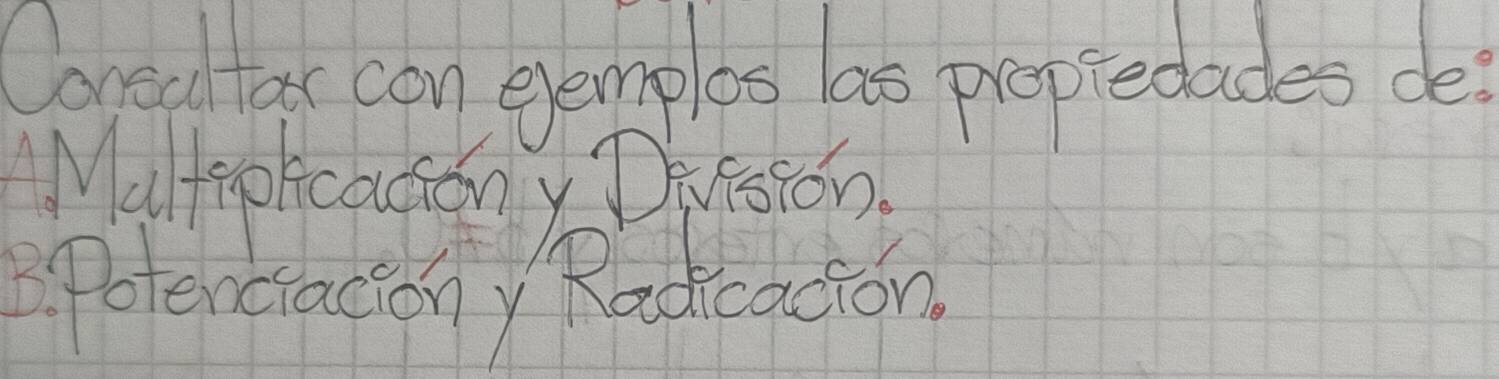 Consultar con ejemplos las propiedades de:
A. Multiplicación y División.
B. Potenciación y Radicación.